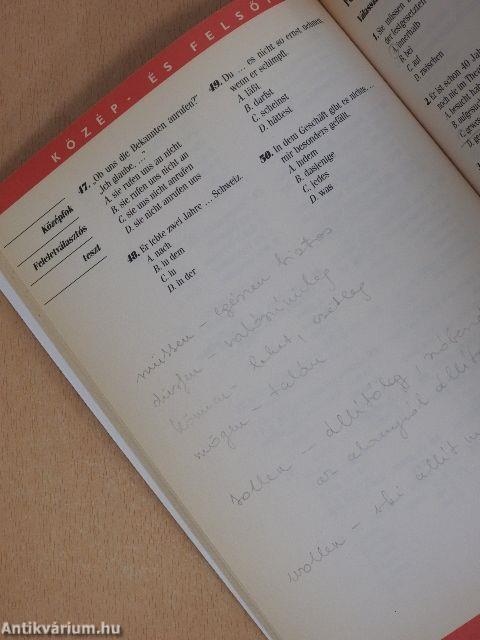 KÖZÉP- ÉS FELSŐ
Középfok
Feleletválasztós
teszt
47. „Ob uns die Bekannten anrufen?"
„Ich glaube, ..."
A. sie rufen uns an nicht
B. sie rufen uns nicht an
C. sie uns nicht anrufen
D. sie nicht anrufen uns
48. Er lebte zwei Jahre ... Schweiz.
A. nach
B. in dem
C. in
D. in der
49. Du ... es nicht so ernst nehmen,
wenn er schimpft.
A. läßt
B. darfst
C. scheinst
D. hättest
50. In dem Geschäft gibt es nichts...
mir besonders gefällt.
A. indem
B. dasjenige
C. jedes
D. was
müssen – egészen biztos
dürfen – valószínűleg
können – lehet, esetleg
mögen – talán
sollen – állítólag,
az alanyról
wollen – vki állít
1. Sie müssen
der festgesetzten
A. innerhalb
B. bei
C. auf
D. zwischen
2. Er ist schon 40 Jahre
noch nie im
A. besucht
Antikvárium.hu